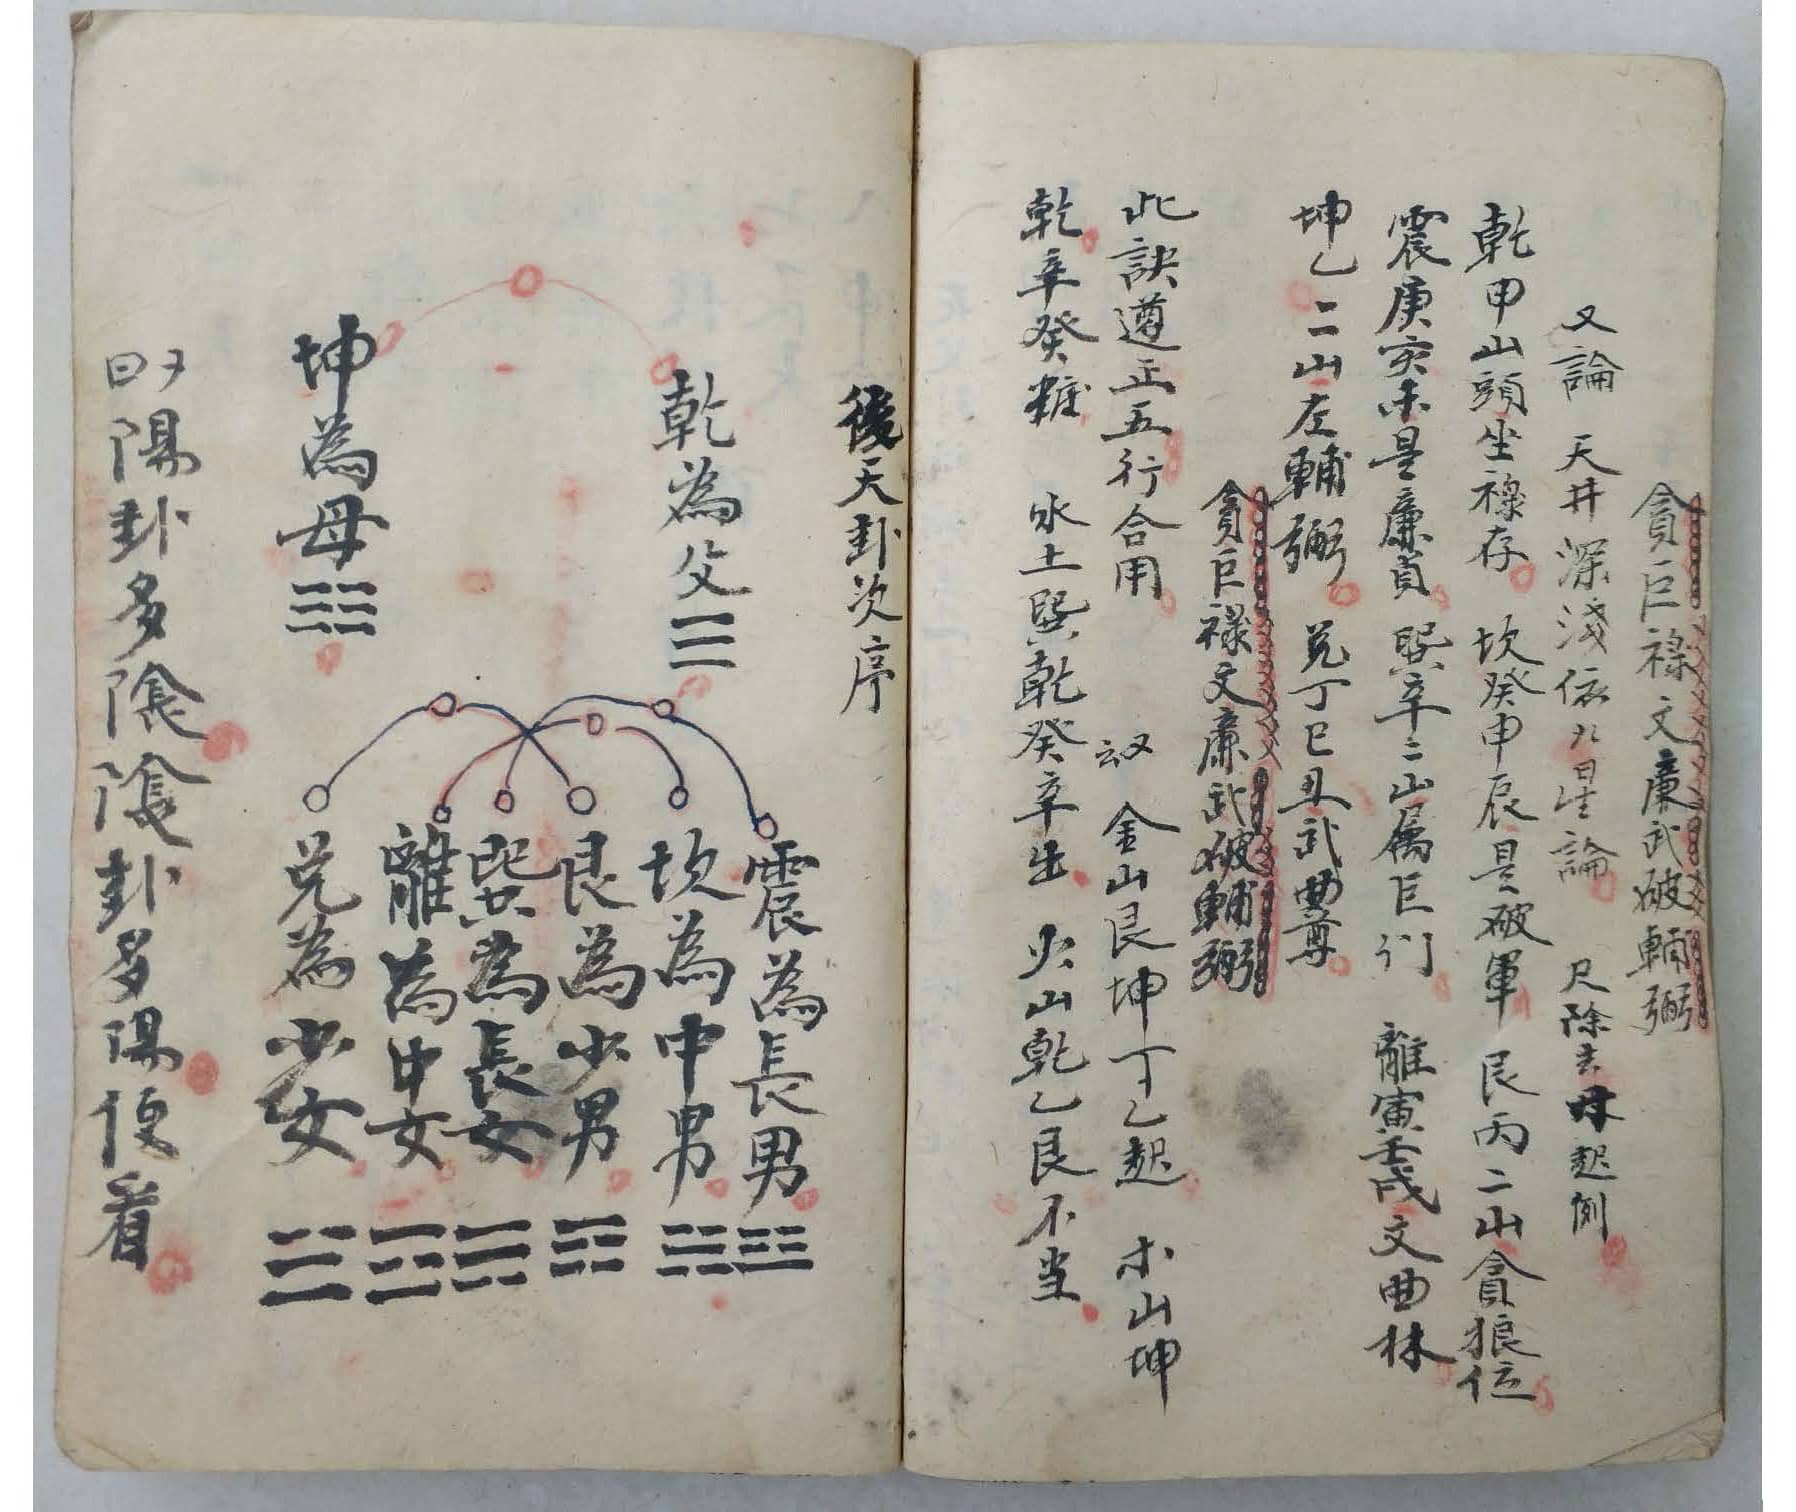 貪巨祿文廉武破輔弼
又論 天井深淺依九星論 尺除去 起例
乾甲山頭坐祿存 坎癸申辰是破軍 艮丙二山貪狼位
震庚亥未是廉貞 巽辛二山屬巨门 離寅壬戌文曲林
坤乙二山左輔弼 兌丁巳丑武曲尊
貪巨祿文廉武破輔弼
此訣遵正五行合用 訣 金山艮坤丁乙起 木山坤
乾辛癸 水土巽乾癸辛出 火山乾乙艮不当
後天卦次序
乾為父☰
坤為母☷
震為長男☳
坎為中男☵
艮為少男☶
巽為長女☴
離為中女☲
兌為少女☱
以陽卦多陰陰卦多陽便看